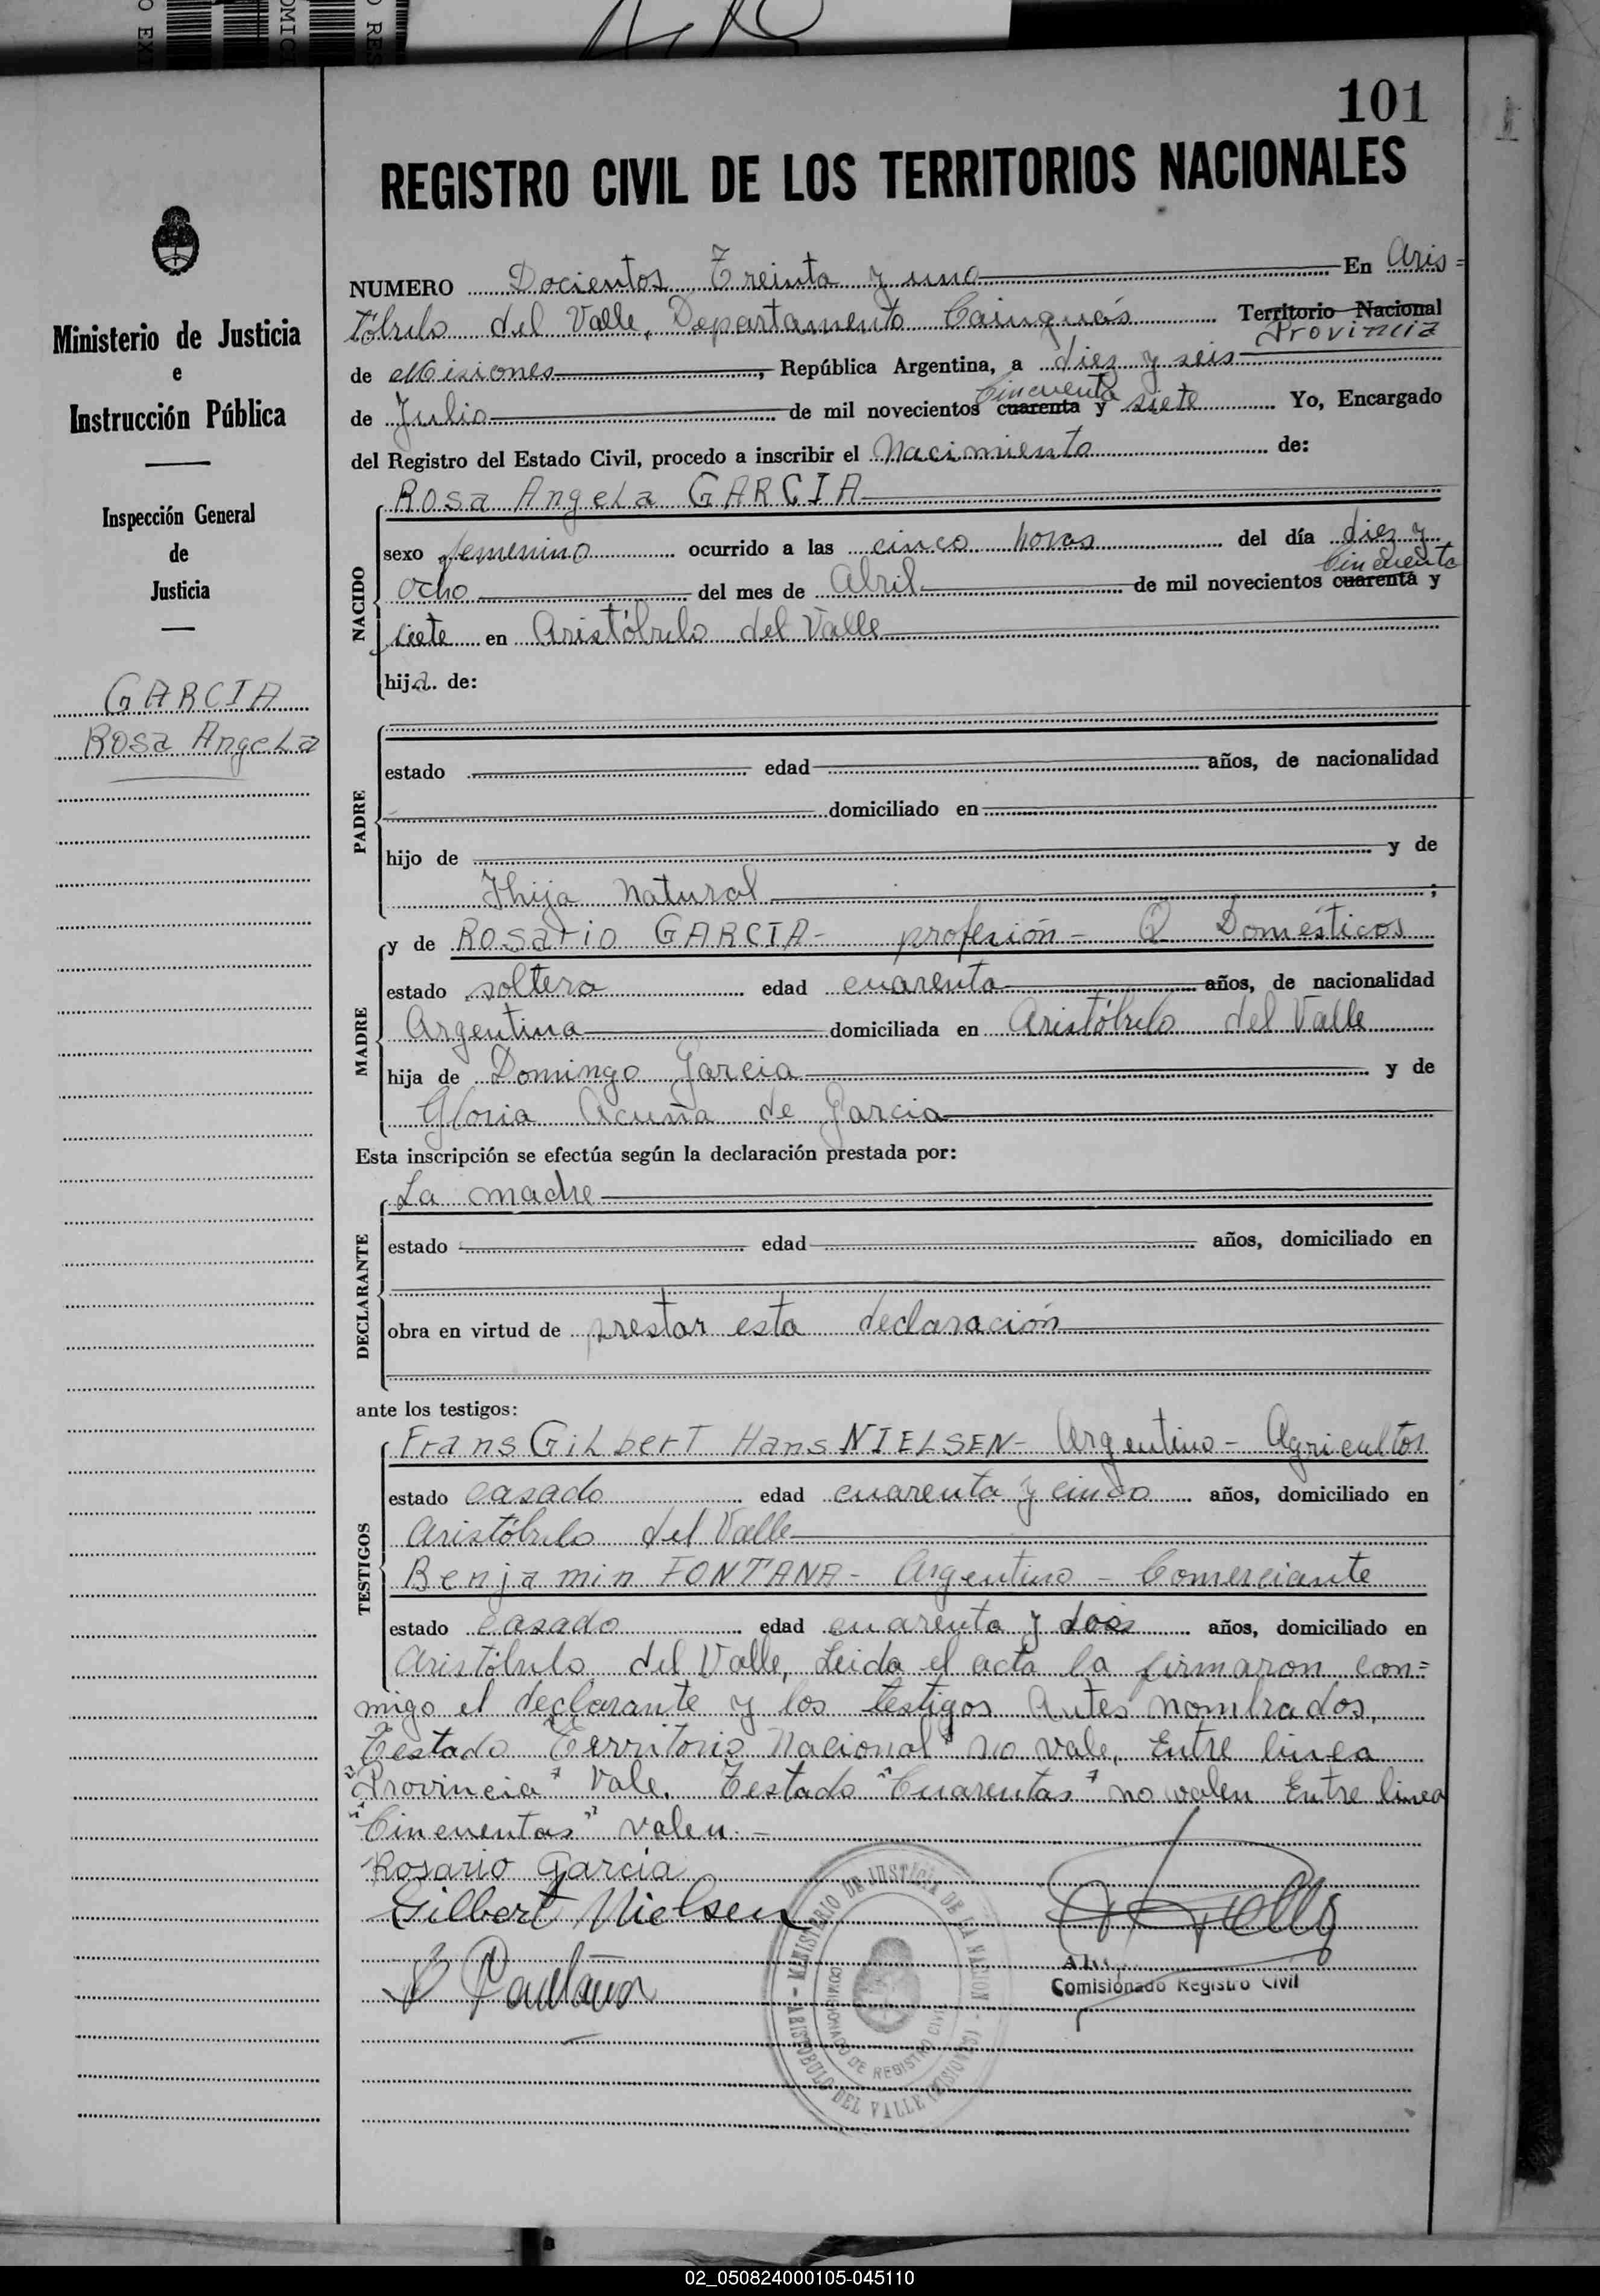 101
REGISTRO CIVIL DE LOS TERRITORIOS NACIONALES
Ministerio de Justicia
e
Instrucción Pública
Inspección General
de
Justicia
GARCIA
Rosa Angela
NUMERO Docientos Treinta y uno En Aris=
tóbulo del Valle, Departamento Cainguás Territorio Nacional
Provincia
de Misiones, República Argentina, a diez y seis
Cincuenta
de Julio de mil novecientos cuarenta y siete Yo, Encargado
del Registro del Estado Civil, procedo a inscribir el Nacimiento de:
NACIDO
Rosa Angela GARCIA
sexo femenino ocurrido a las cinco horas del día diez y
Cincuenta
ocho del mes de Abril de mil novecientos cuarenta y
siete en Aristóbulo del Valle
hija de:
PADRE
estado edad años, de nacionalidad
domiciliado en
hijo de y de
Hija Natural ;
MADRE
y de Rosario GARCIA- profesión- Q Domésticos
estado soltera edad cuarenta años, de nacionalidad
Argentina domiciliada en Aristóbulo del Valle
hija de Domingo Garcia y de
Gloria Acuña de Garcia
Esta inscripción se efectúa según la declaración prestada por:
DECLARANTE
La madre
estado edad años, domiciliado en
obra en virtud de prestar esta declaración
ante los testigos:
TESTIGOS
Frans Gilbert Hans NIELSEN- Argentino- Agricultor
estado casado edad cuarenta y cinco años, domiciliado en
Aristóbulo del Valle
Benjamin FONTANA- Argentino - Comerciante
estado casado edad cuarenta y dos años, domiciliado en
Aristóbulo del Valle, Leida el acta la firmaron con=
migo el declarante y los testigos Antes nombrados,
Testado "Territorio Nacional" no vale, Entre linea
"Provincia" Vale. Testado "Cuarentas" no valen Entre linea
"Cincuentas" valen.-
Rosario Garcia
Gilbert Nielsen
Comisionado Registro Civil
MINISTERIO DE JUSTICIA DE LA NACION - ARISTOBULO DEL VALLE (MISIONES) -
COMISIONADO DE REGISTRO CIVIL
02_050824000105-045110